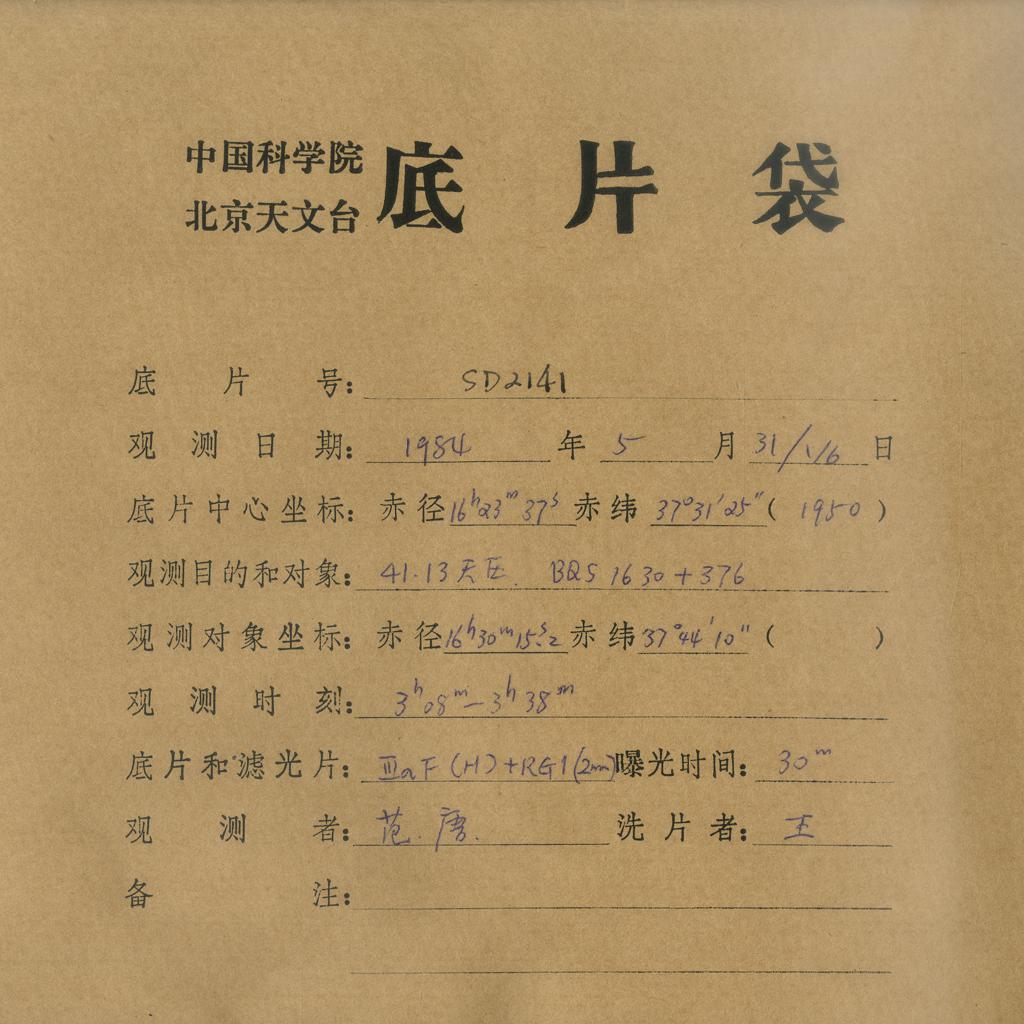 中国科学院
北京天文台
底片袋
底片号: SD2141
观测日期: 1984 年 5 月 31/1/6 日
底片中心坐标: 赤径 16h23m37s 赤纬 37°31′25″ ( 1950 )
观测目的和对象: 41.13天区. BQS 1630+376
观测对象坐标: 赤径 16h30m15s.2 赤纬 37°44′10″ ( )
观测时刻: 3h08m—3h38m
底片和滤光片: ⅢaF (H)+RG1(2mm) 曝光时间: 30m
观测者: 范. 唐. 洗片者: 王
备注: